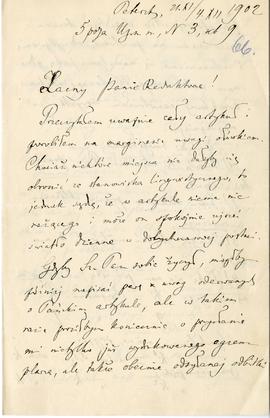 Petersb. 21.XI/4.XII 1902
5 рота Изм. п., N 3, кв 9
66.
Zacny Panie Redaktorze!
Przeczytałem uważnie cały artykuł i
porobiłem na marginesie uwagi ołówkiem.
Chociaż niektóre miejsca nie dadzą się
obronić ze stanowiska lingwistycznego, to
jednak sądzę, że w artykule niema nic
rażącego i może on spokojnie ujrzeć
światło dzienne w dotychczasowej postaci.
Gdyby Sz. Pan sobie życzył, mógłbym
później napisać parę uwag oderwanych
o Pańskim artykule, ale w takim
razie prosiłbym koniecznie o przysłanie
mi nietylko już wydrukowanego egzem-
plarza, ale także obecnie odsyłanej odbitki